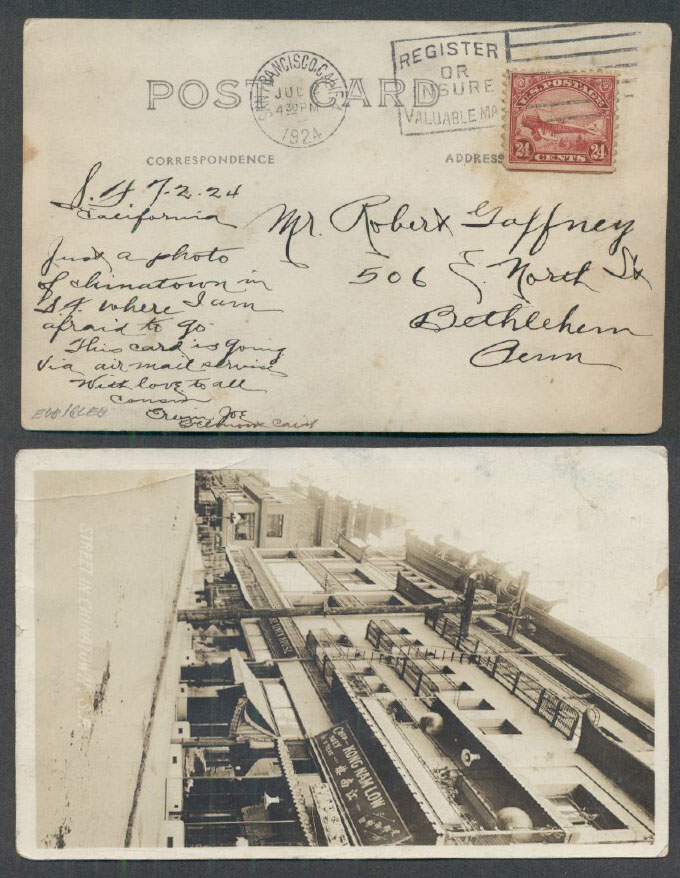 POST CARD
SAN FRANCISCO, CALIF.
JUL
4 30 PM
1924
REGISTER
OR
INSURE
VALUABLE MA
U.S. POSTAGE
24 CENTS 24
CORRESPONDENCE
ADDRESS
S. F. 7-2-24
California
Just a photo
of chinatown in
S.F. where I am
afraid to go.
This card is going
via air mail service
With love to all
cousin
Joe
Mr. Robert Gaffney
506 E. North St
Bethlehem
Penn
STREET IN CHINATOWN, S.F.
KONG NAM LOW